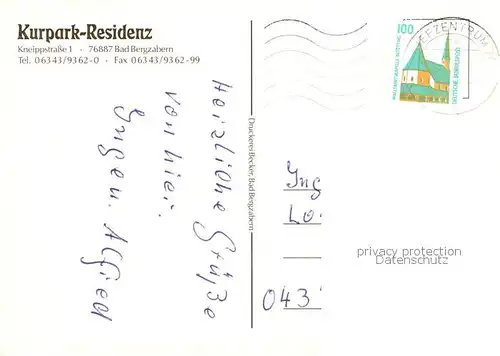 Kurpark-Residenz
Kneippstraße 1 · 76887 Bad Bergzabern
Tel. 06343/9362-0 · Fax 06343/9362-99
Herzliche Grüße
von hier.
Alfred
Druckerei Becker, Bad Bergzabern
100
DEUTSCHE BUNDESPOST
WALLFAHRTSKAPELLE ALTÖTTING
EFZENTRUM
Ing
Lo
043
privacy protection
Datenschutz